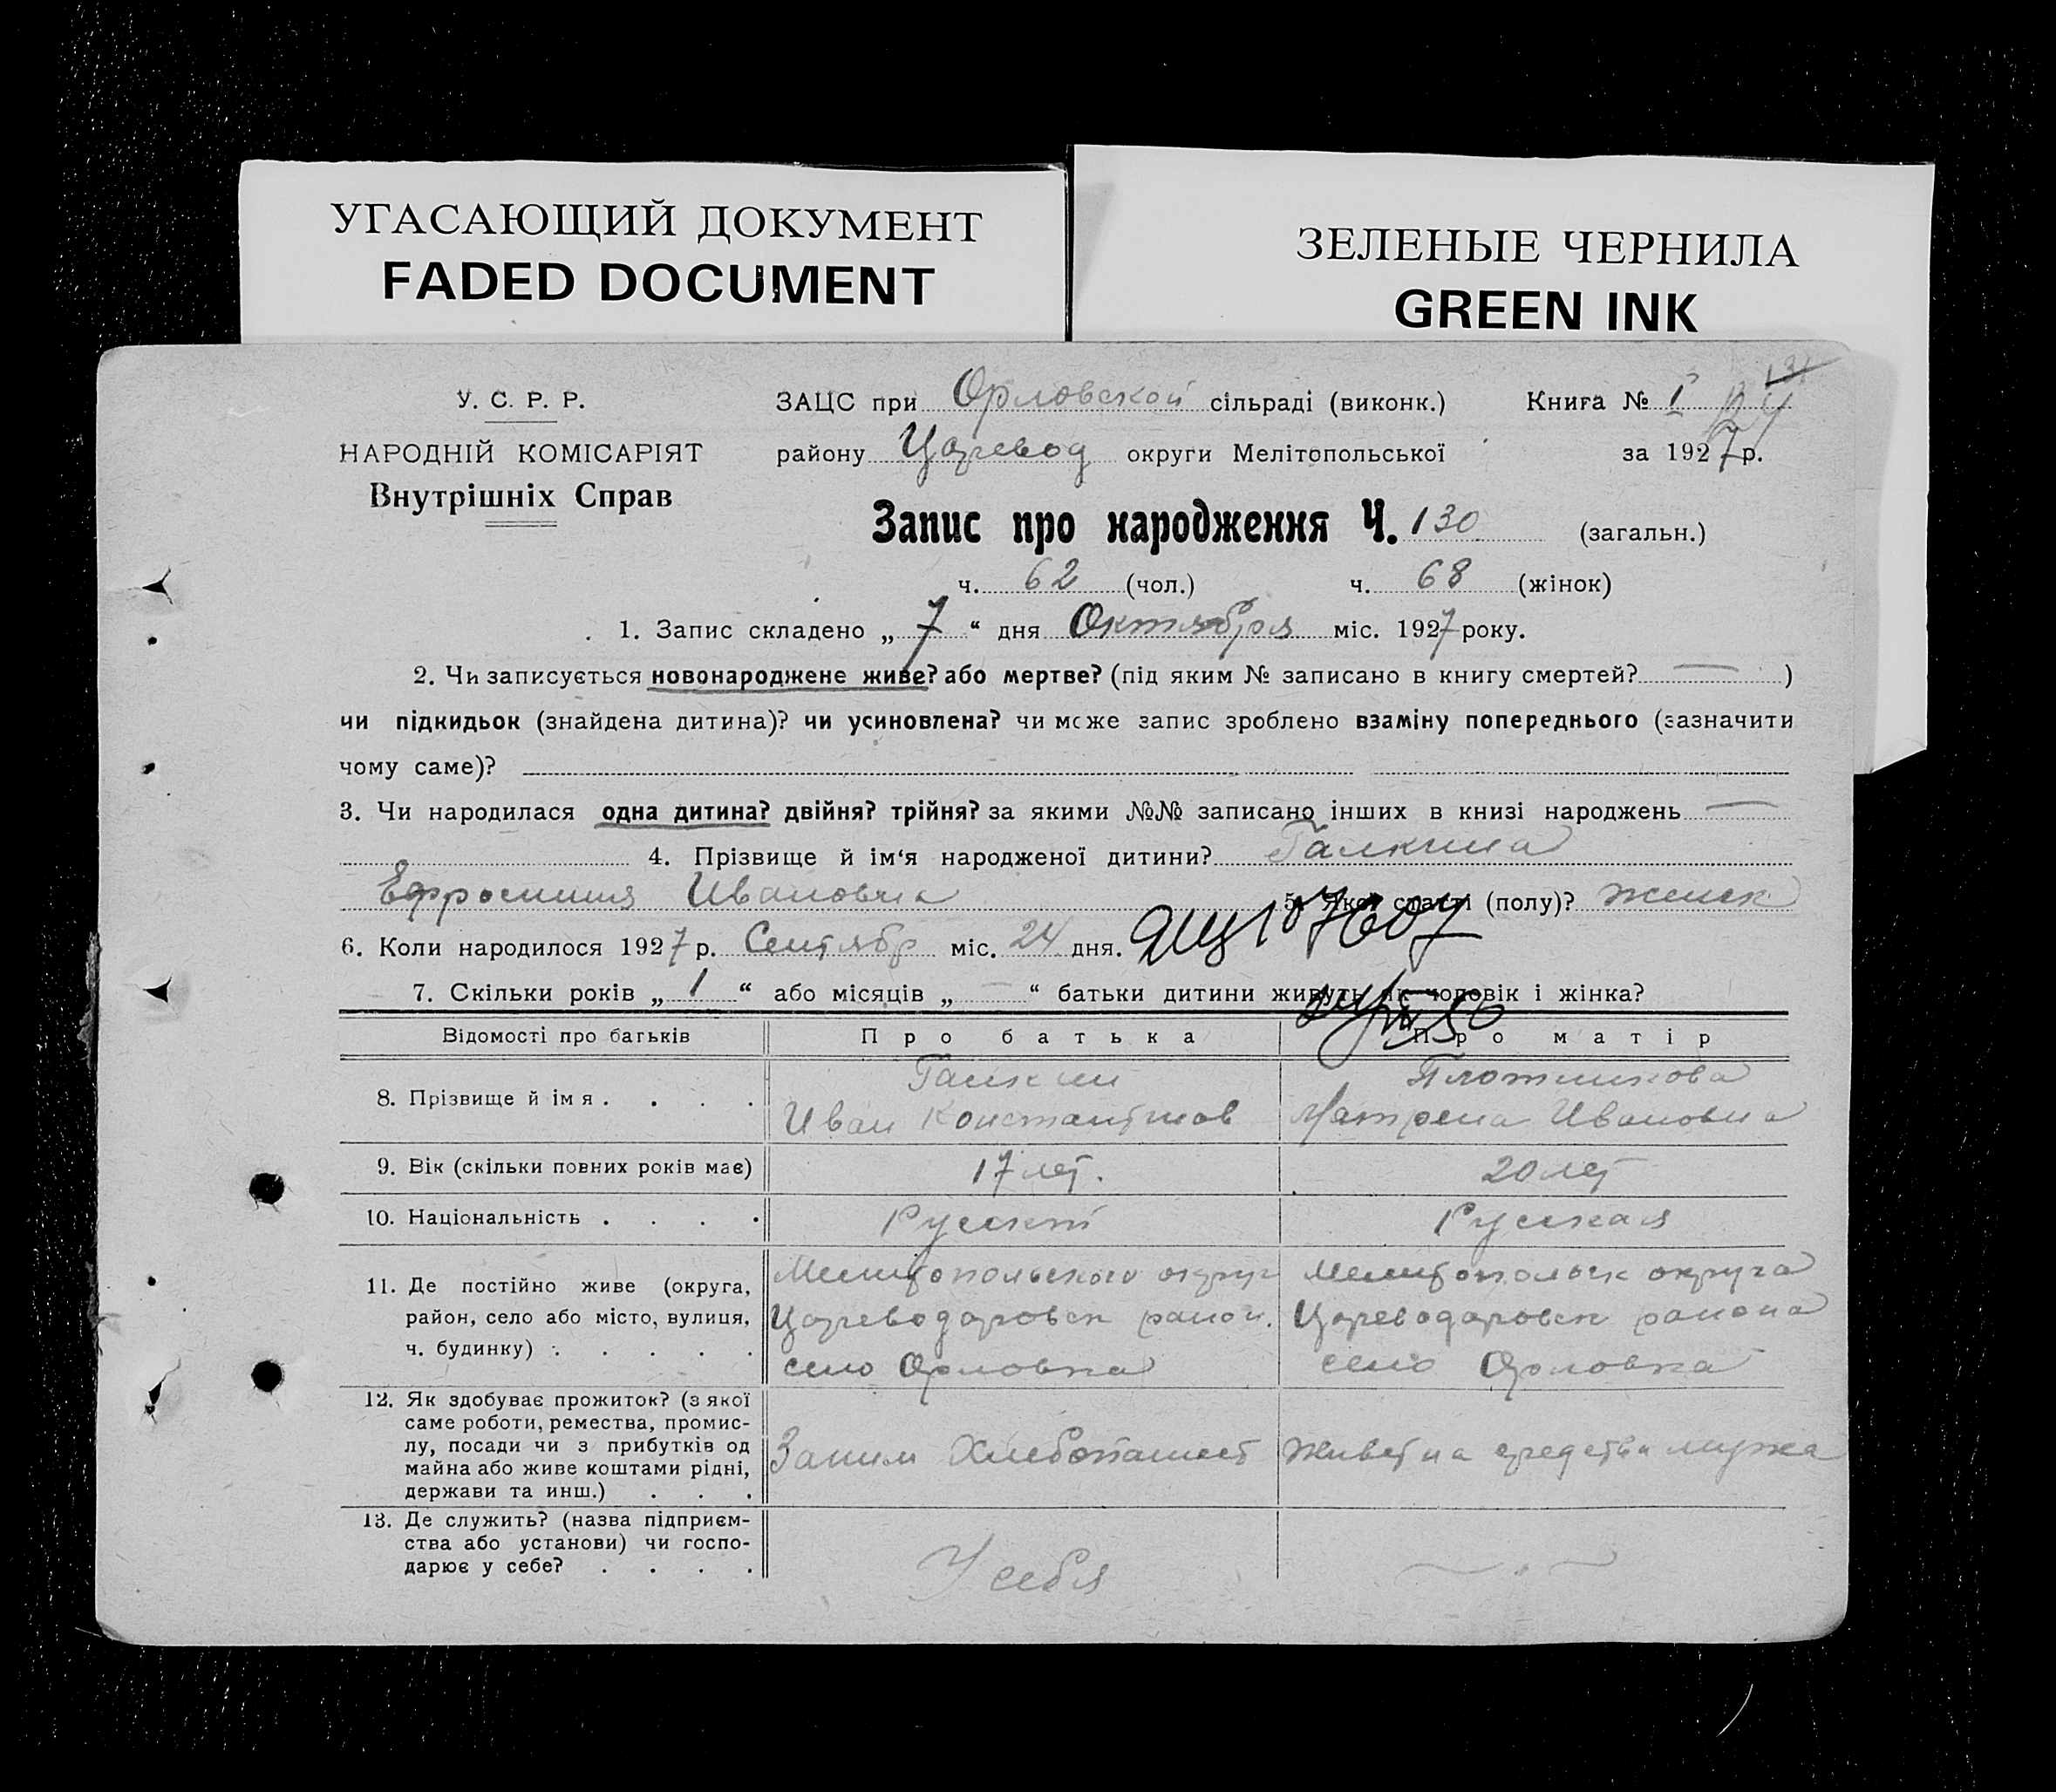 УГАСАЮЩИЙ ДОКУМЕНТ
FADED DOCUMENT
ЗЕЛЕНЫЕ ЧЕРНИЛА
GREEN INK
У. С. Р. Р.
НАРОДНІЙ КОМІСАРІЯТ
Внутрішніх Справ
ЗАЦС при Орловской сільраді (виконк.) Книга № I
району Царевод округи Мелітопольської за 1927 р.
Запис про народження Ч. 130 (загальн.)
ч. 62 (чол.) ч. 68 (жінок)
1. Запис складено „ 7 “ дня Октября міс. 1927 року.
2. Чи записується новонароджене живе? або мертве? (під яким № записано в книгу смертей? — )
чи підкидьок (знайдена дитина)? чи усиновлена? чи може запис зроблено взаміну попереднього (зазначити
чому саме)?
3. Чи народилася одна дитина? двійня? трійня? за якими №№ записано інших в книзі народжень —
4. Прізвище й ім‘я народженої дитини? Галкина
Ефросиния Ивановна 5. Якої статті (полу)? женск
6. Коли народилося 1927 р. Сентябр міс. 24 дня.
7. Скільки років „ 1 “ або місяців „ — “ батьки дитини живуть як чоловік і жінка?
Відомості про батьків Про батька Про матір
8. Прізвище й імя . . . . Галкин Плотникова
Иван Константинов Матрена Ивановна
9. Вік (скільки повних років має) 17 лет. 20 лет
10. Національність . . . . Русский Русская
11. Де постійно живе (округа, Мелитопольского округ Мелитопольск округа
район, село або місто, вулиця, Цареводаровск район. Цареводаровск района
ч. будинку) . . . . . село Орловка село Орловка
12. Як здобуває прожиток? (з якої
саме роботи, ремества, промис-
лу, посади чи з прибутків од Заним Хлебопашест Живет на средства мужа
майна або живе коштами рідні,
держави та инш.) . . .
13. Де служить? (назва підприєм-
ства або установи) чи госпо-
дарює у себе? . . . . У себя